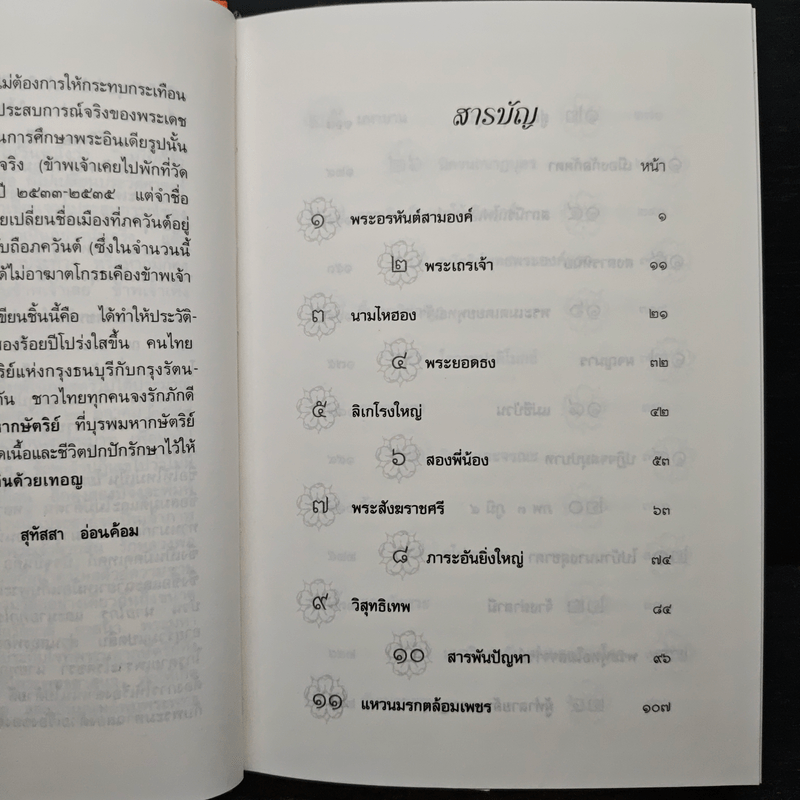 ไม่ต้องการให้กระทบกระเทือน
ประสบการณ์จริงของพระเดช
นการศึกษาพระอินเดียรูปนั้น
จริง (ข้าพเจ้าเคยไปพักที่วัด
ปี ๒๕๓๓-๒๕๓๕ แต่จำชื่อ
ยเปลี่ยนชื่อเมืองที่ภควันต์อยู่
บถือภควันต์ (ซึ่งในจำนวนนี้
ได้ไม่อาฆาตโกรธเคืองข้าพเจ้า
ขียนชิ้นนี้คือ ได้ทำให้ประวัติ-
ของร้อยปีโปร่งใสขึ้น คนไทย
ริย์แห่งกรุงธนบุรีกับกรุงรัตน-
กัน ชาวไทยทุกคนจงรักภักดี
หากษัตริย์ ที่บุรพมหากษัตริย์
ดเนื้อและชีวิตปกปักรักษาไว้ให้
กันด้วยเทอญ
สุทัสสา อ่อนค้อม
สารบัญ
หน้า
๑ พระอรหันต์สามองค์ ๑
๒ พระเถรเจ้า ๑๑
๓ นามไหฮอง ๒๑
๔ พระยอดธง ๓๒
๕ ลิเกโรงใหญ่ ๔๒
๖ สองพี่น้อง ๕๓
๗ พระสังฆราชศรี ๖๓
๘ ภาระอันยิ่งใหญ่ ๗๔
๙ วิสุทธิเทพ ๘๔
๑๐ สารพันปัญหา ๙๖
๑๑ แหวนมรกตล้อมเพชร ๑๐๗